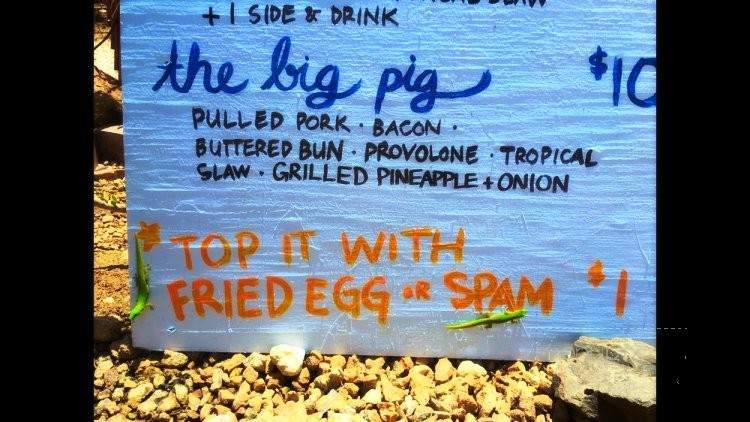 SLAW
+ 1 SIDE & DRINK
the big pig $10
PULLED PORK · BACON ·
BUTTERED BUN · PROVOLONE · TROPICAL
SLAW · GRILLED PINEAPPLE + ONION
* TOP IT WITH
FRIED EGG OR SPAM $1